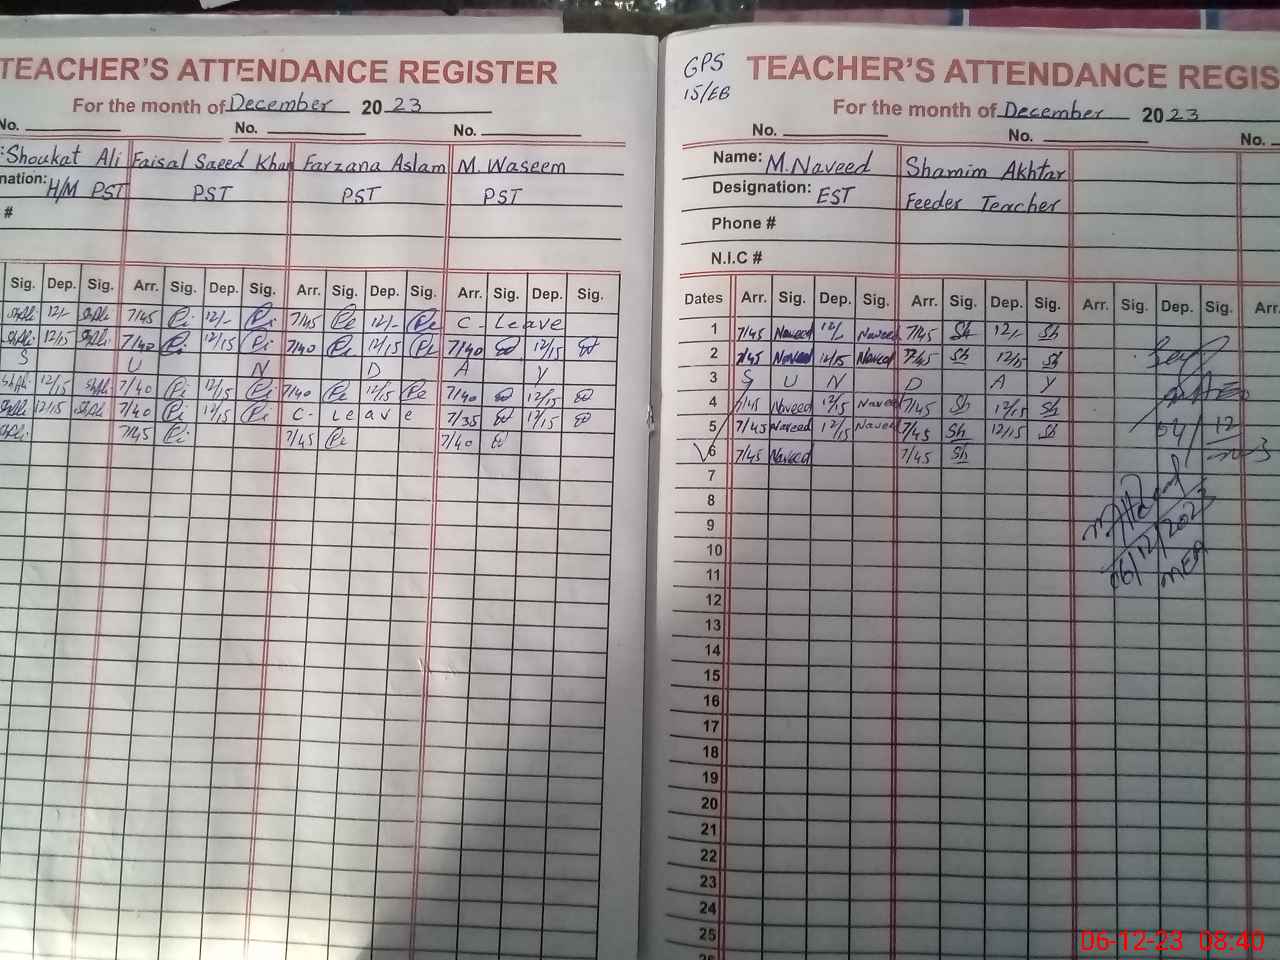 TEACHER'S ATTENDANCE REGISTER
For the month of December 2023
No. No. No.
:Shoukat Ali Faisal Saeed Khan Farzana Aslam M. Waseem
nation: H/M PST PST PST PST
#
Sig. Dep. Sig. Arr. Sig. Dep. Sig. Arr. Sig. Dep. Sig. Arr. Sig. Dep. Sig.
12/- 7/45 12/- 7/45 12/- C - Leave
12/15 7/40 12/15 7/40 12/15 7/40 12/15
S U N D A Y
12/15 7/40 12/15 7/40 12/15 7/40 12/15
12/15 7/40 12/15 C - Leave 7/35 12/15
7/45 7/45 7/40
GPS
15/EB
TEACHER'S ATTENDANCE REGIS
For the month of December 2023
No. No. No.
Name: M.Naveed Shamim Akhtar
Designation: EST Feeder Teacher
Phone #
N.I.C #
Dates Arr. Sig. Dep. Sig. Arr. Sig. Dep. Sig. Arr. Sig. Dep. Sig. Arr.
1 7/45 Naveed 12/- Naveed 7/45 Sh 12/- Sh
2 7/45 Naveed 12/15 Naveed 7/45 Sh 12/15 Sh
3 S U N D A Y
4 7/45 Naveed 12/15 Naveed 7/45 Sh 12/15 Sh
5 7/45 Naveed 12/15 Naveed 7/45 Sh 12/15 Sh
6 7/45 Naveed 7/45 Sh
7
8
9
10
11
12
13
14
15
16
17
18
19
20
21
22
23
24
25
26
06/12/2023
MEA
06-12-23 08:40